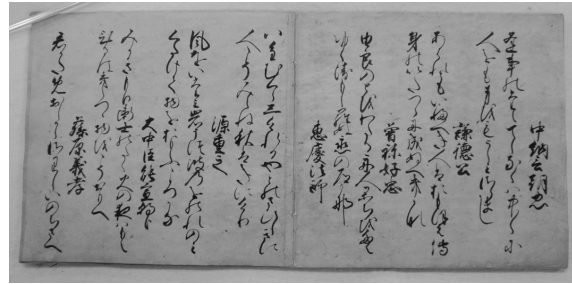 中納言朝忠
逢事のたえてしなくは中〳〵に
人をも身をもうらみさらまし
謙徳公
あはれともいふへき人はおもほえて
身のいたつらに成ぬへきかな
曽祢好忠
由良のとをわたる舟人かちをたえ
ゆくゑもしらぬ恋の道かな
恵慶法師
やへむくらしけれるやとのさひしきに
人こそみえね秋はきにけり
源重之
風をいたみ岩うつ波のをのれのみ
くたけて物をおもふころかな
大中臣能宣朝臣
みかきもり衛士のたく火の夜はもえ
ひるはきえつゝ物をこそおもへ
藤原義孝
君かためおしからさりしいのちさへ